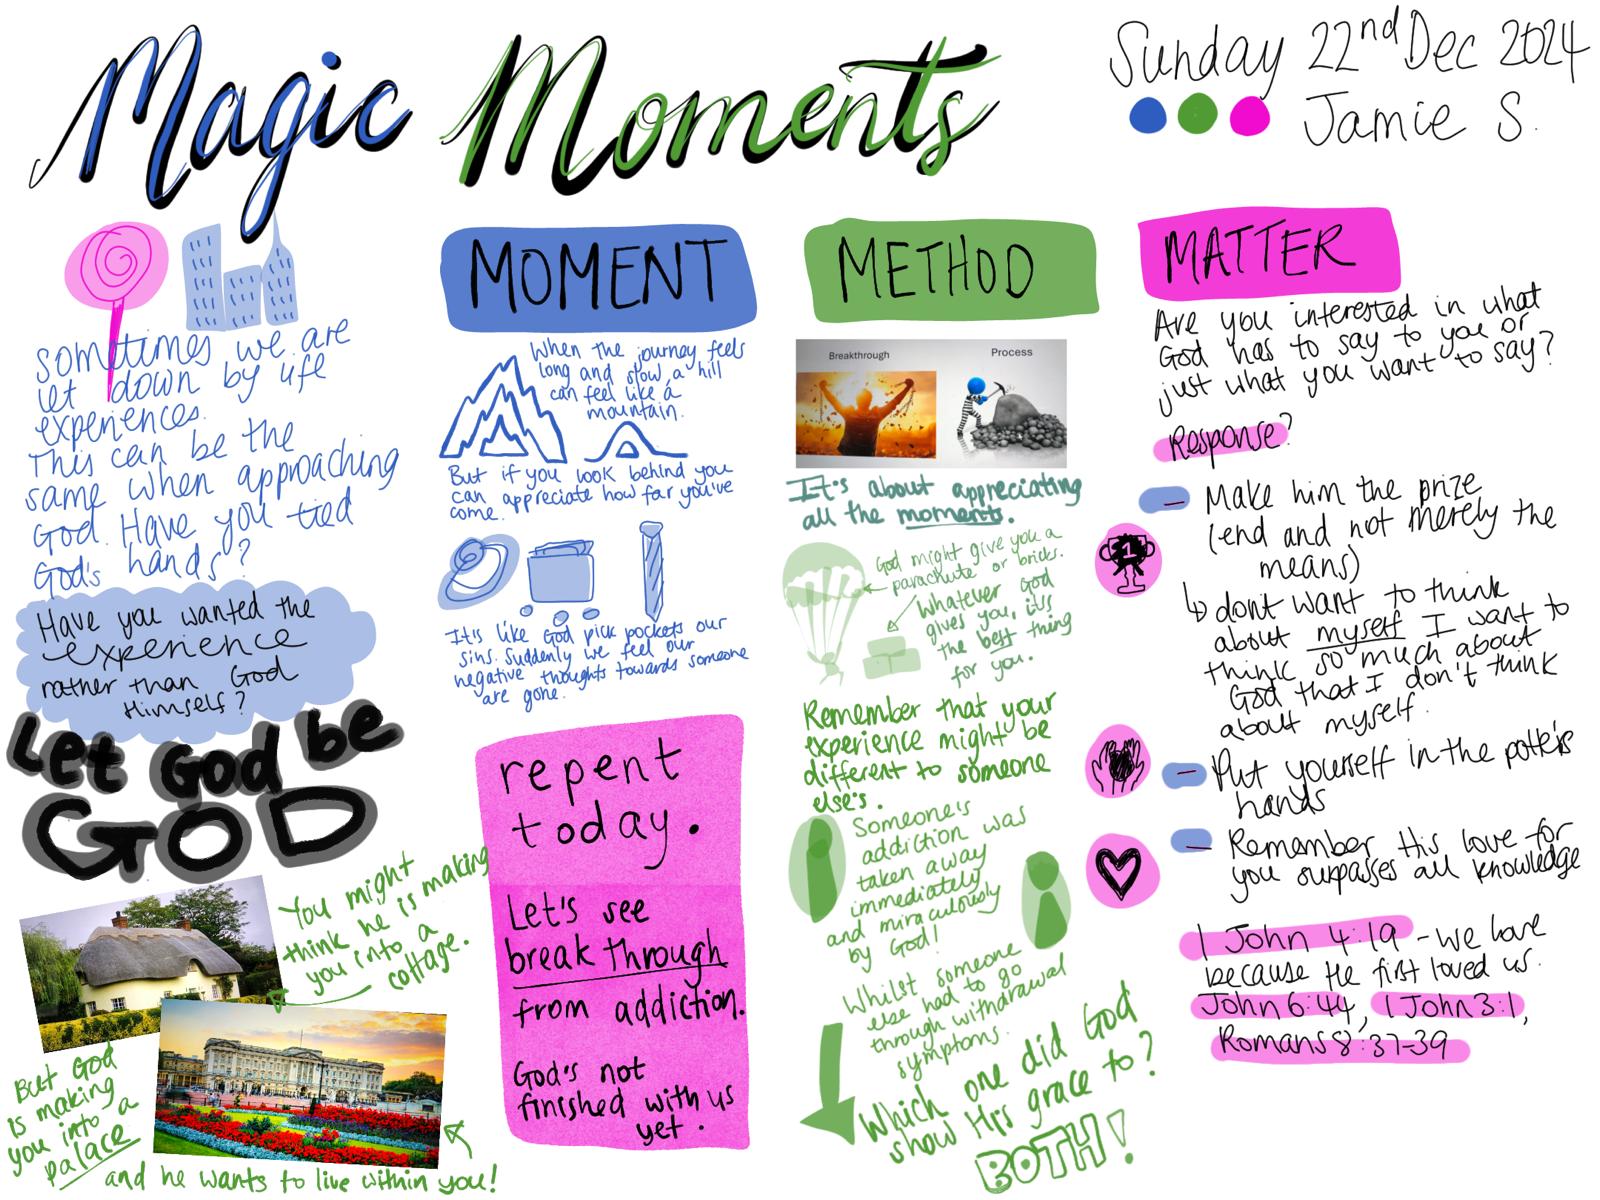 Magic Moments
Sunday 22nd Dec 2024
Jamie S.
Sometimes we are
let down by life
experiences.
This can be the
same when approaching
God. Have you tied
God's hands?
Have you wanted the
experience
rather than God
Himself?
Let God be
GOD
You might
think he is making
you into a
cottage.
But God
is making
you into a
palace
and he wants to live within you!
MOMENT
When the journey feels
long and slow, a hill
can feel like a
mountain.
But if you look behind you
can appreciate how far you've
come.
It's like God pick pockets our
sins. Suddenly we feel our
negative thoughts towards someone
are gone.
repent
today.
Let's see
break through
from addiction.
God's not
finished with us
yet.
METHOD
Breakthrough
Process
It's about appreciating
all the moments.
God might give you a
parachute or bricks.
Whatever God
gives you, it's
the best thing
for you.
Remember that your
experience might be
different to someone
else's.
Someone's
addiction was
taken away
immediately
and miraculously
by God!
Whilst someone
else had to go
through withdrawal
symptoms.
Which one did God
show His grace to?
BOTH!
MATTER
Are you interested in what
God has to say to you or
just what you want to say?
Response?
- Make him the prize
1
(end and not merely the
means)
↳ dont want to think
about myself I want to
think so much about
God that I don't think
about myself.
- Put yourself in the potter's
hands
- Remember His love for
you surpasses all knowledge
1 John 4:19 - We love
because He first loved us.
John 6:44, 1 John 3:1,
Romans 8:37-39